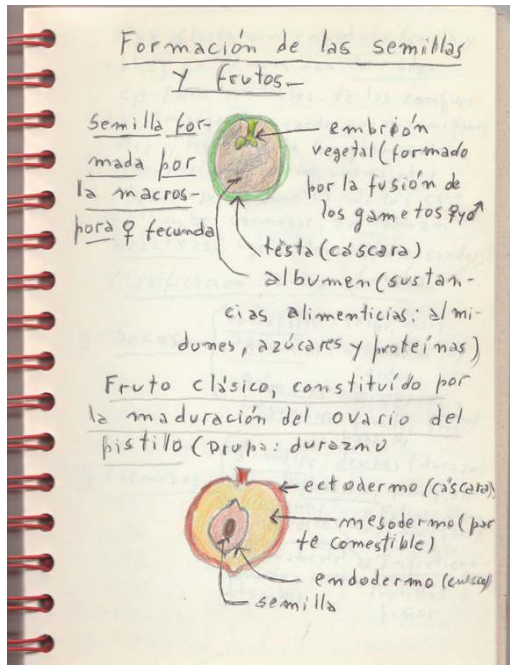 Formación de las semillas
y frutos—
Semilla for-
mada por
la macros-
pora ♀ fecunda
embrión
vegetal (formado
por la fusión de
los gametos ♀ y ♂
testa (cáscara)
albumen (sustan-
cias alimenticias: almi-
dones, azúcares y proteínas)
Fruto clásico, constituído por
la maduración del ovario del
pistilo (Drupa: durazno
ectodermo (cáscara)
mesodermo (par
te comestible)
endodermo
semilla